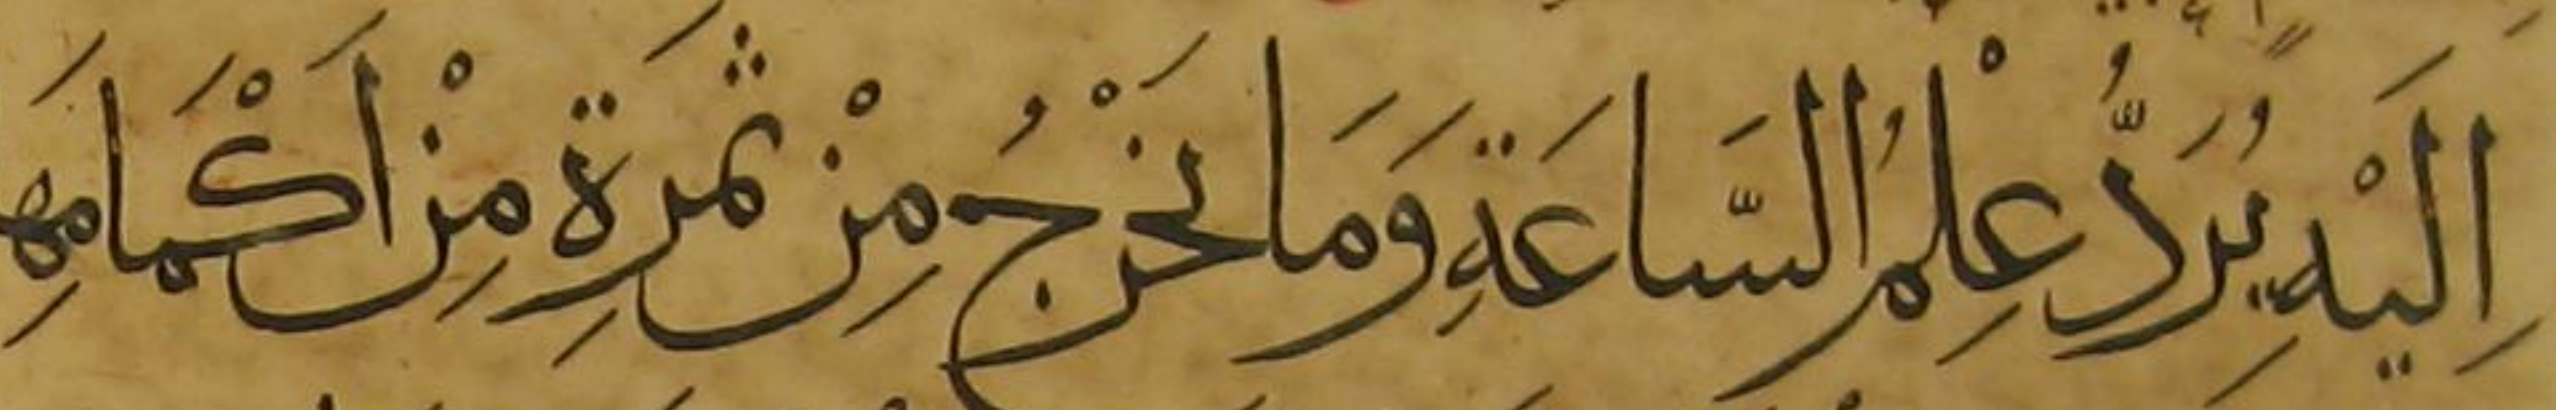 اِلَيْهِ يُرَدُّ عِلْمُ السَّاعَةِ وَمَا تَخْرُجُ مِنْ ثَمَرَةٍ مِنْ اَكْمَامِهَ